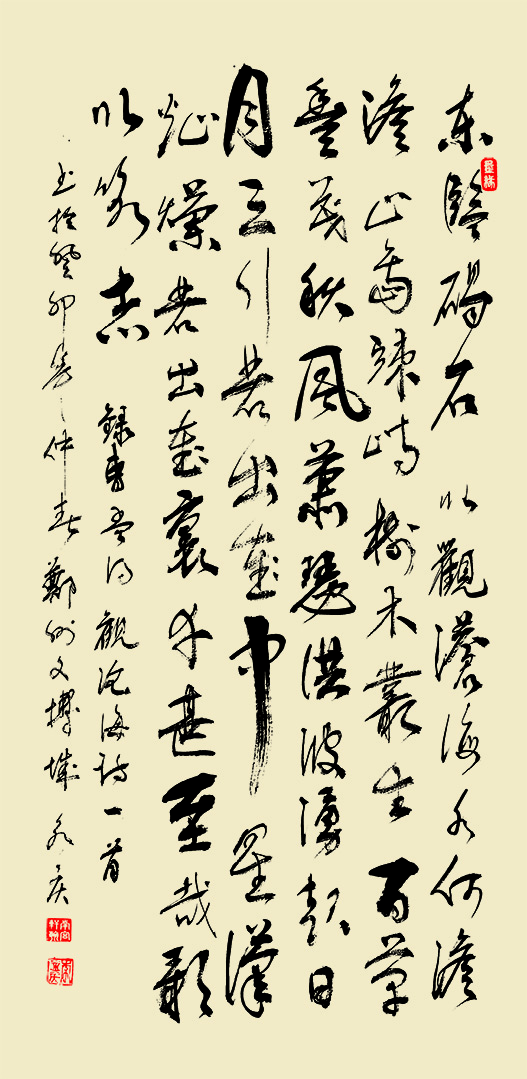 東臨碣石以觀滄海水何澹
澹山島竦峙樹木叢生百草
豐茂秋風蕭瑟洪波湧起日
月之行若出其中星漢
燦爛若出其裏幸甚至哉歌
以詠志 錄曹孟德觀滄海詩一首
書於癸卯年仲春鄭州文博城 永庆